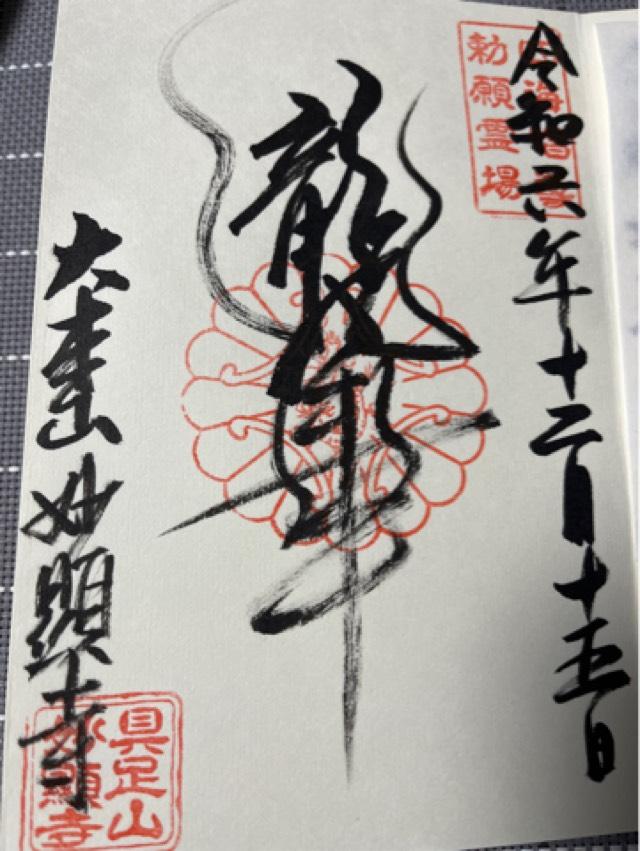 令和六年十二月十五日
四海唱導
勅願霊場
龍華
大本山 妙顕寺
具足山
妙顯寺